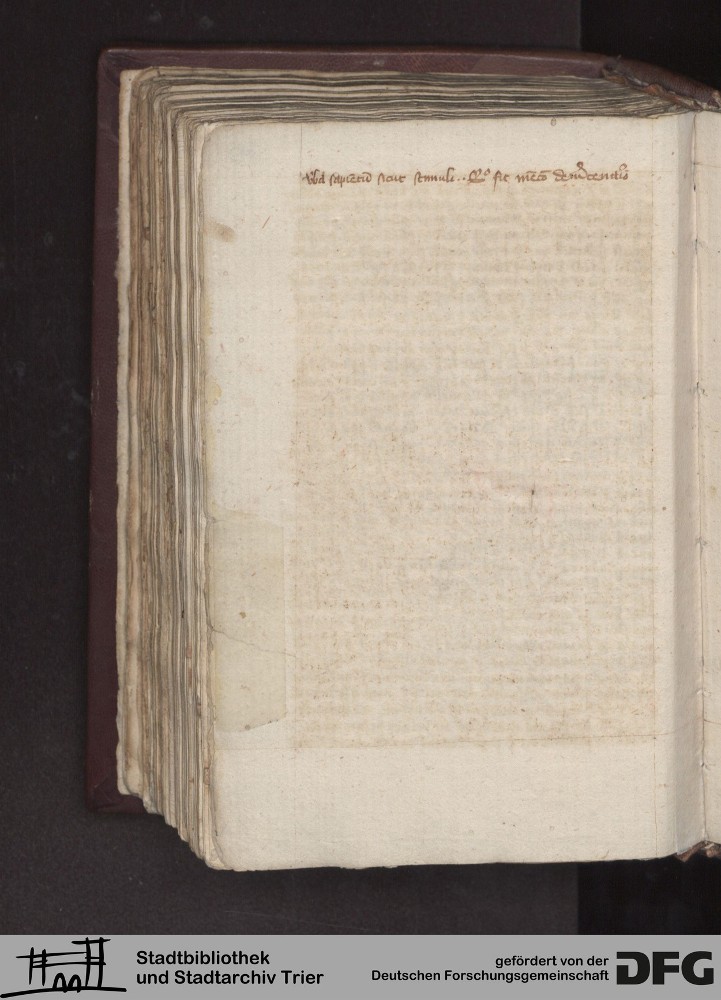 v̄ba sapiētiū sicut stimuli . . Qº sic
Stadtbibliothek
und Stadtarchiv Trier
gefördert von der
Deutschen Forschungsgemeinschaft
DFG